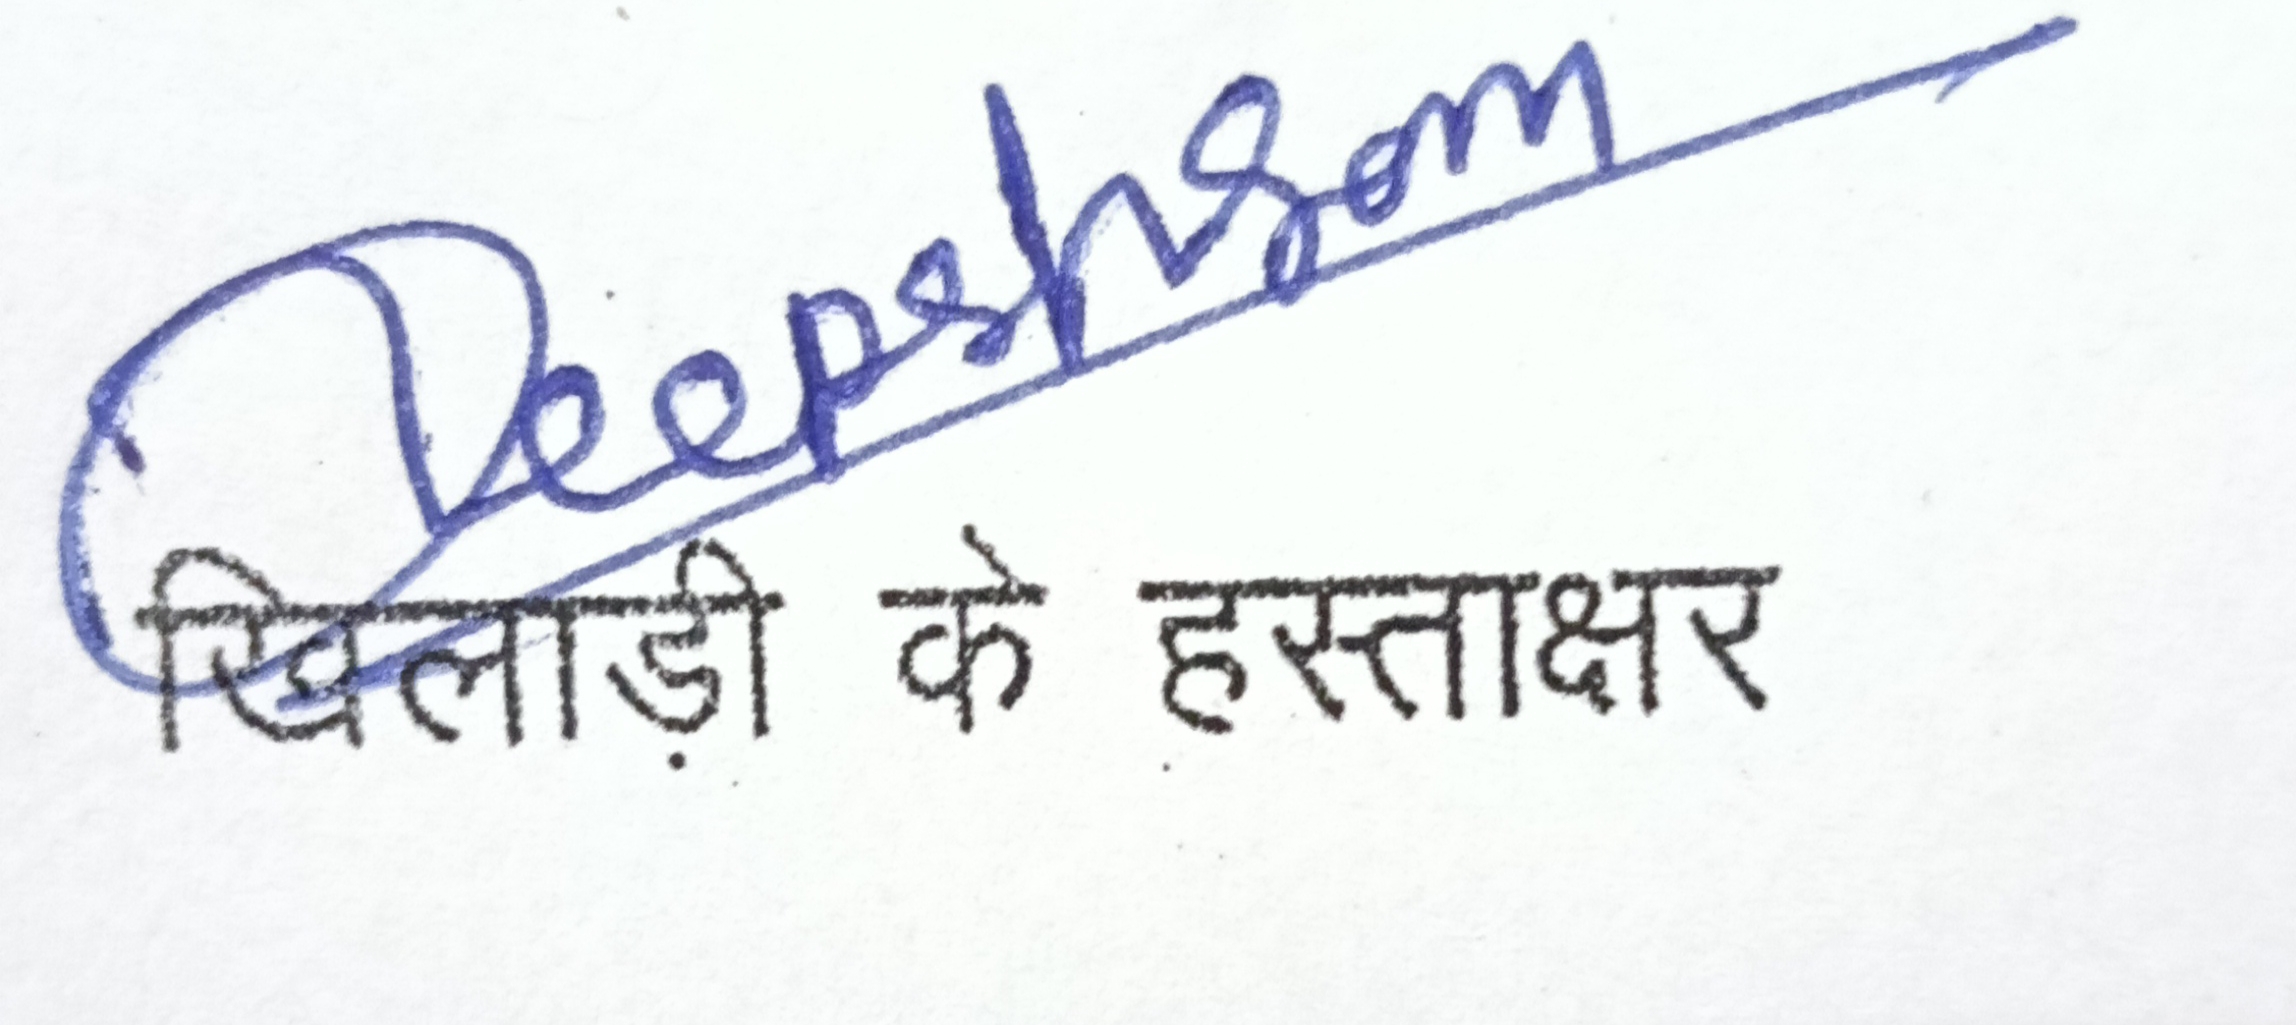 Deepshsom
खिलाड़ी के हस्ताक्षर